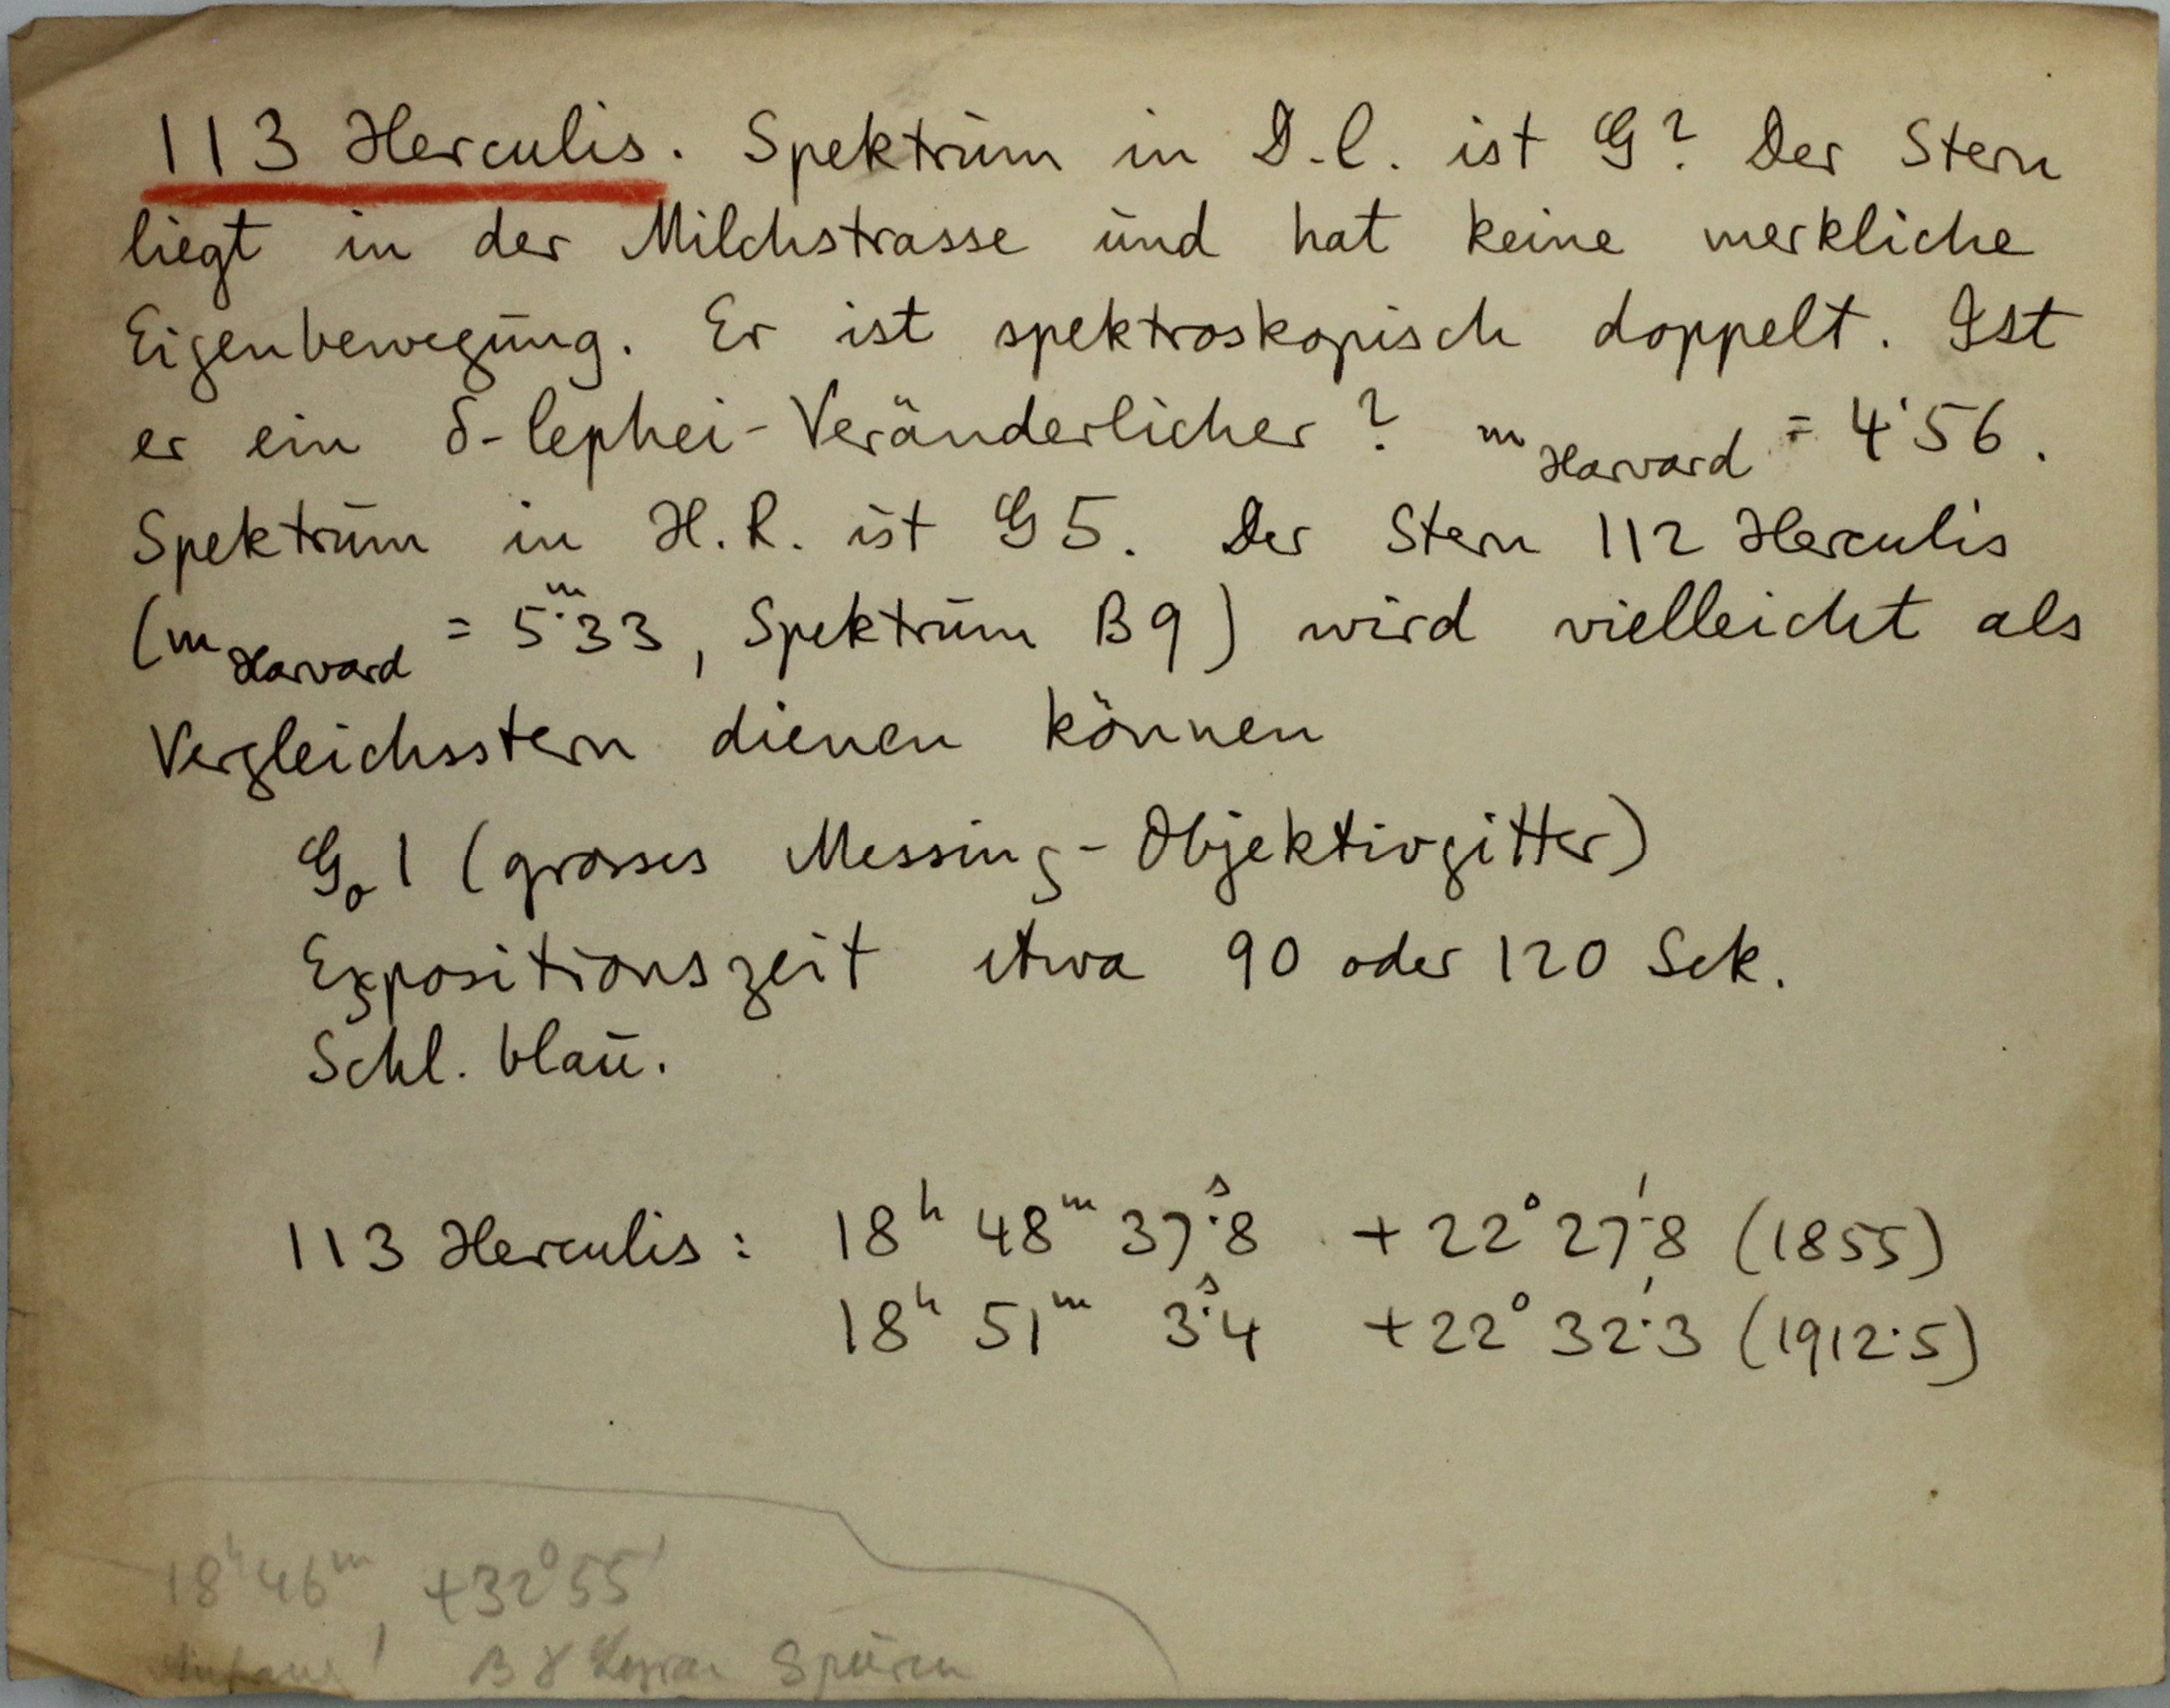 113 Herculis. Spektrum in D.C. ist G? Der Stern
liegt in der Milchstrasse und hat keine merkliche
Eigenbewegung. Er ist spektroskopisch doppelt. Ist
er ein δ-Cephei-Veränderlicher? m Harvard = 4·56.
Spektrum in H.R. ist G5. Der Stern 112 Herculis
(m Harvard = 5ᵐ·33, Spektrum B9) wird vielleicht als
Vergleichsstern dienen können
G₀1 (grosses Messing-Objektivgitter)
Expositionszeit etwa 90 oder 120 Sek.
Schl. blau.
113 Herculis: 18ʰ 48ᵐ 37ˢ·8 +22° 27'·8 (1855)
18ʰ 51ᵐ 3ˢ·4 +22° 32'·3 (1912·5)
18ʰ46ᵐ, +32°55'
Spuren